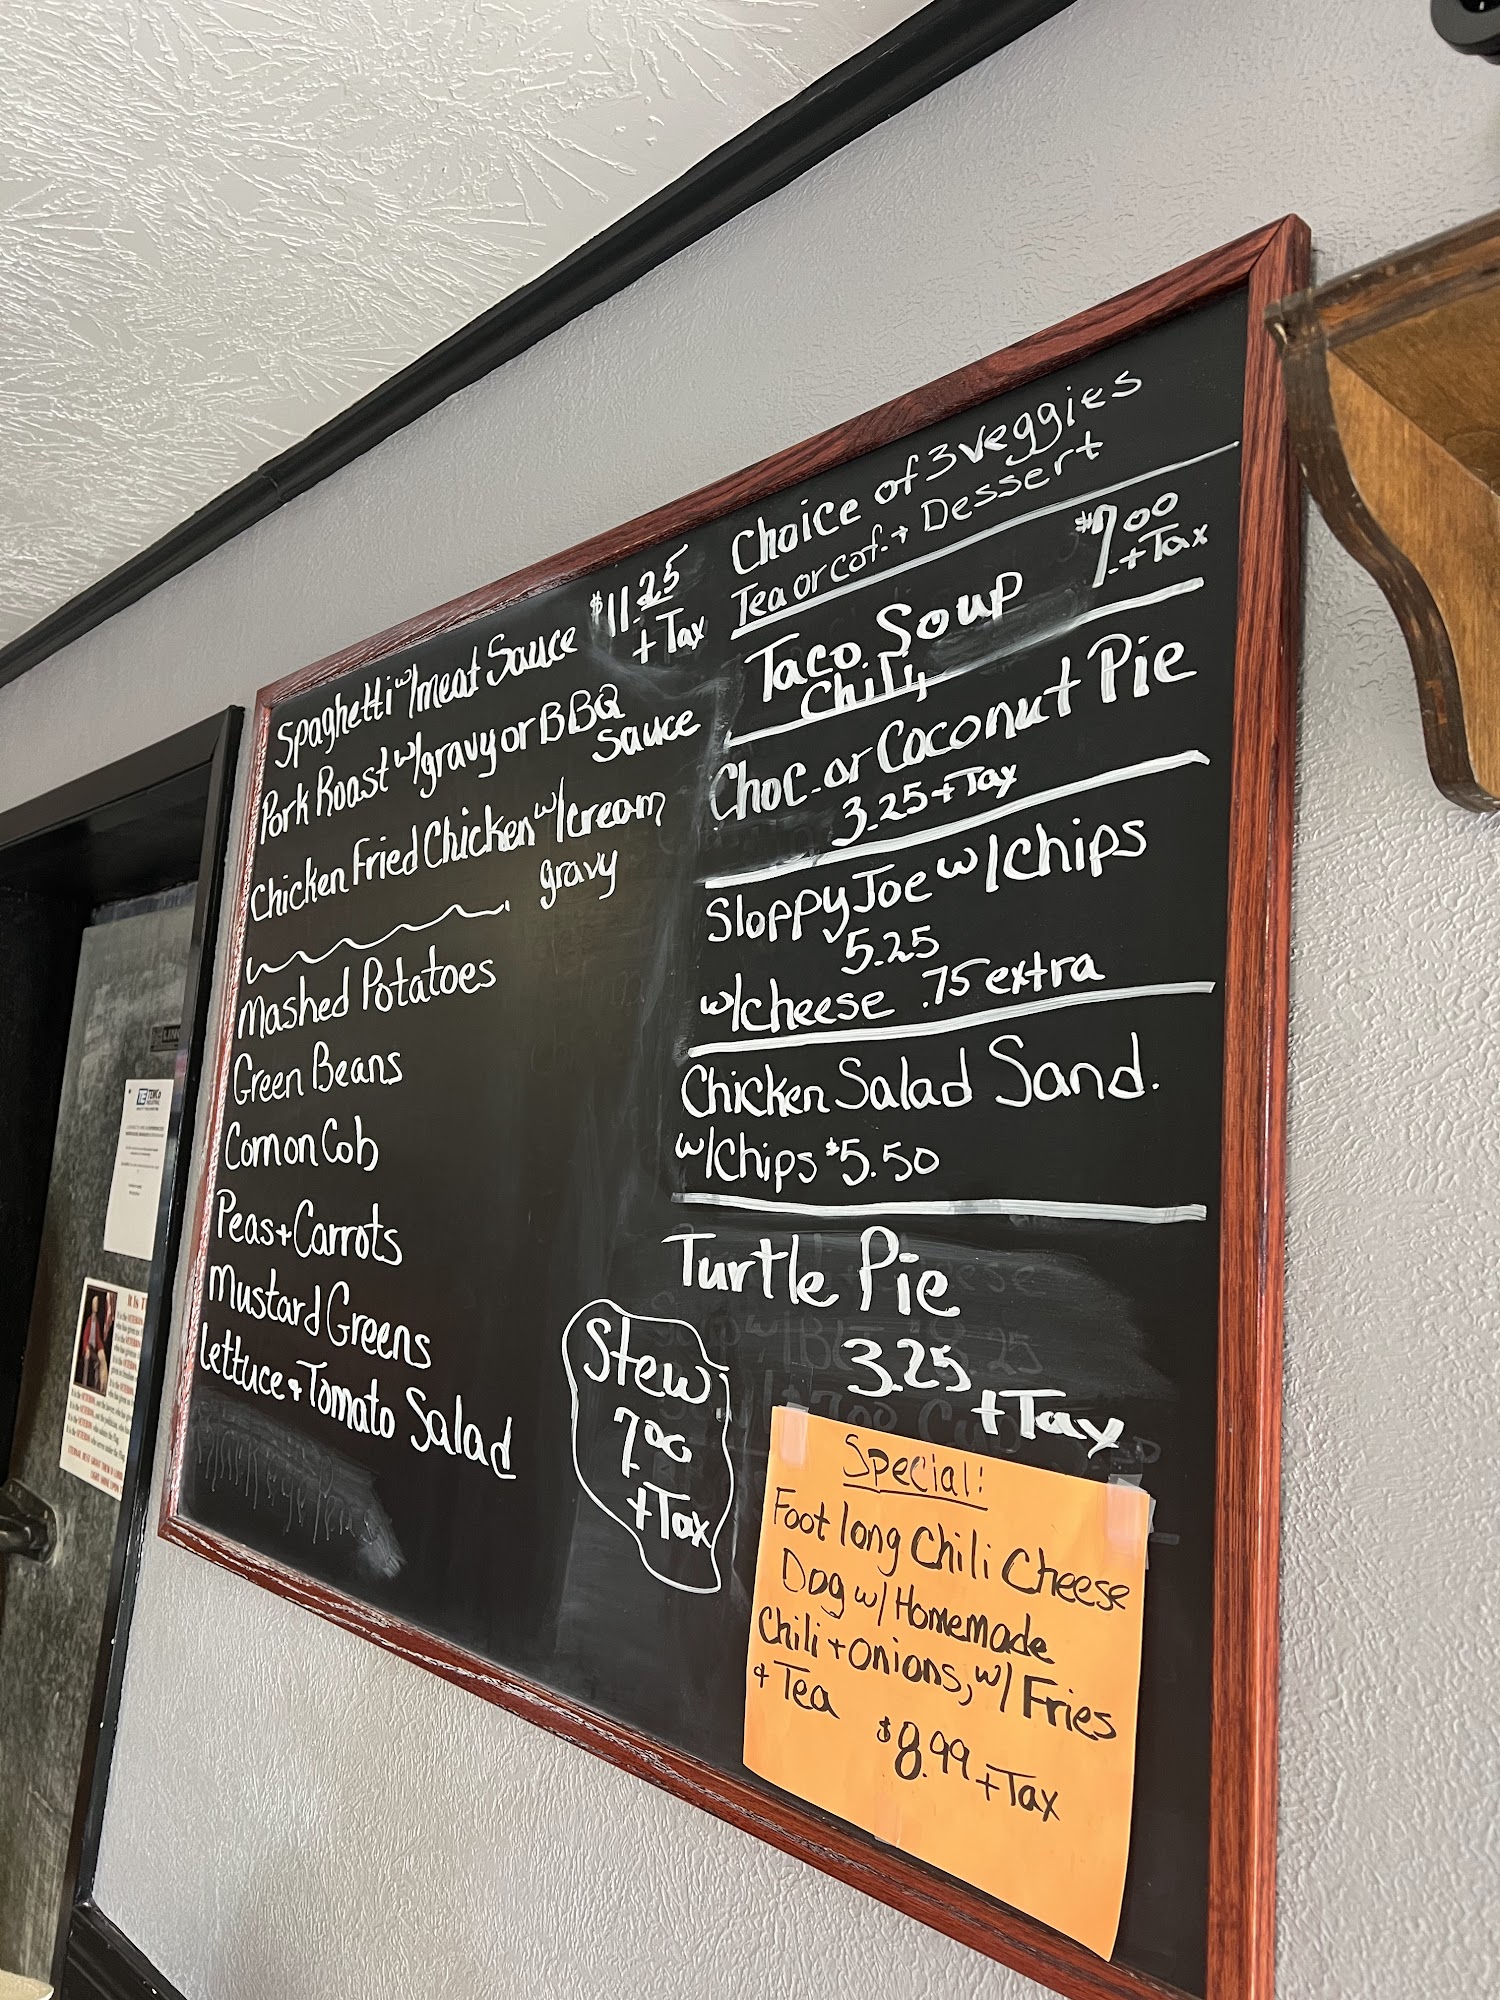 Spaghetti w/meat Sauce $11.25
+ Tax
Pork Roast w/gravy or BBQ
Sauce
Chicken Fried Chicken w/cream
gravy
Mashed Potatoes
Green Beans
Corn on Cob
Peas + Carrots
Mustard Greens
Lettuce + Tomato Salad
Choice of 3 veggies
Tea or cof. + Dessert
Taco Soup $7.00
+ Tax
Chili
Choc. or Coconut Pie
3.25 + Tax
Sloppy Joe w/chips
5.25
w/cheese .75 extra
Chicken Salad Sand.
w/chips $5.50
Turtle Pie
3.25
+ Tax
Stew
7.00
+ Tax
Special:
Foot long Chili Cheese
Dog w/ Homemade
Chili + onions, w/ Fries
+ Tea
$8.99 + Tax